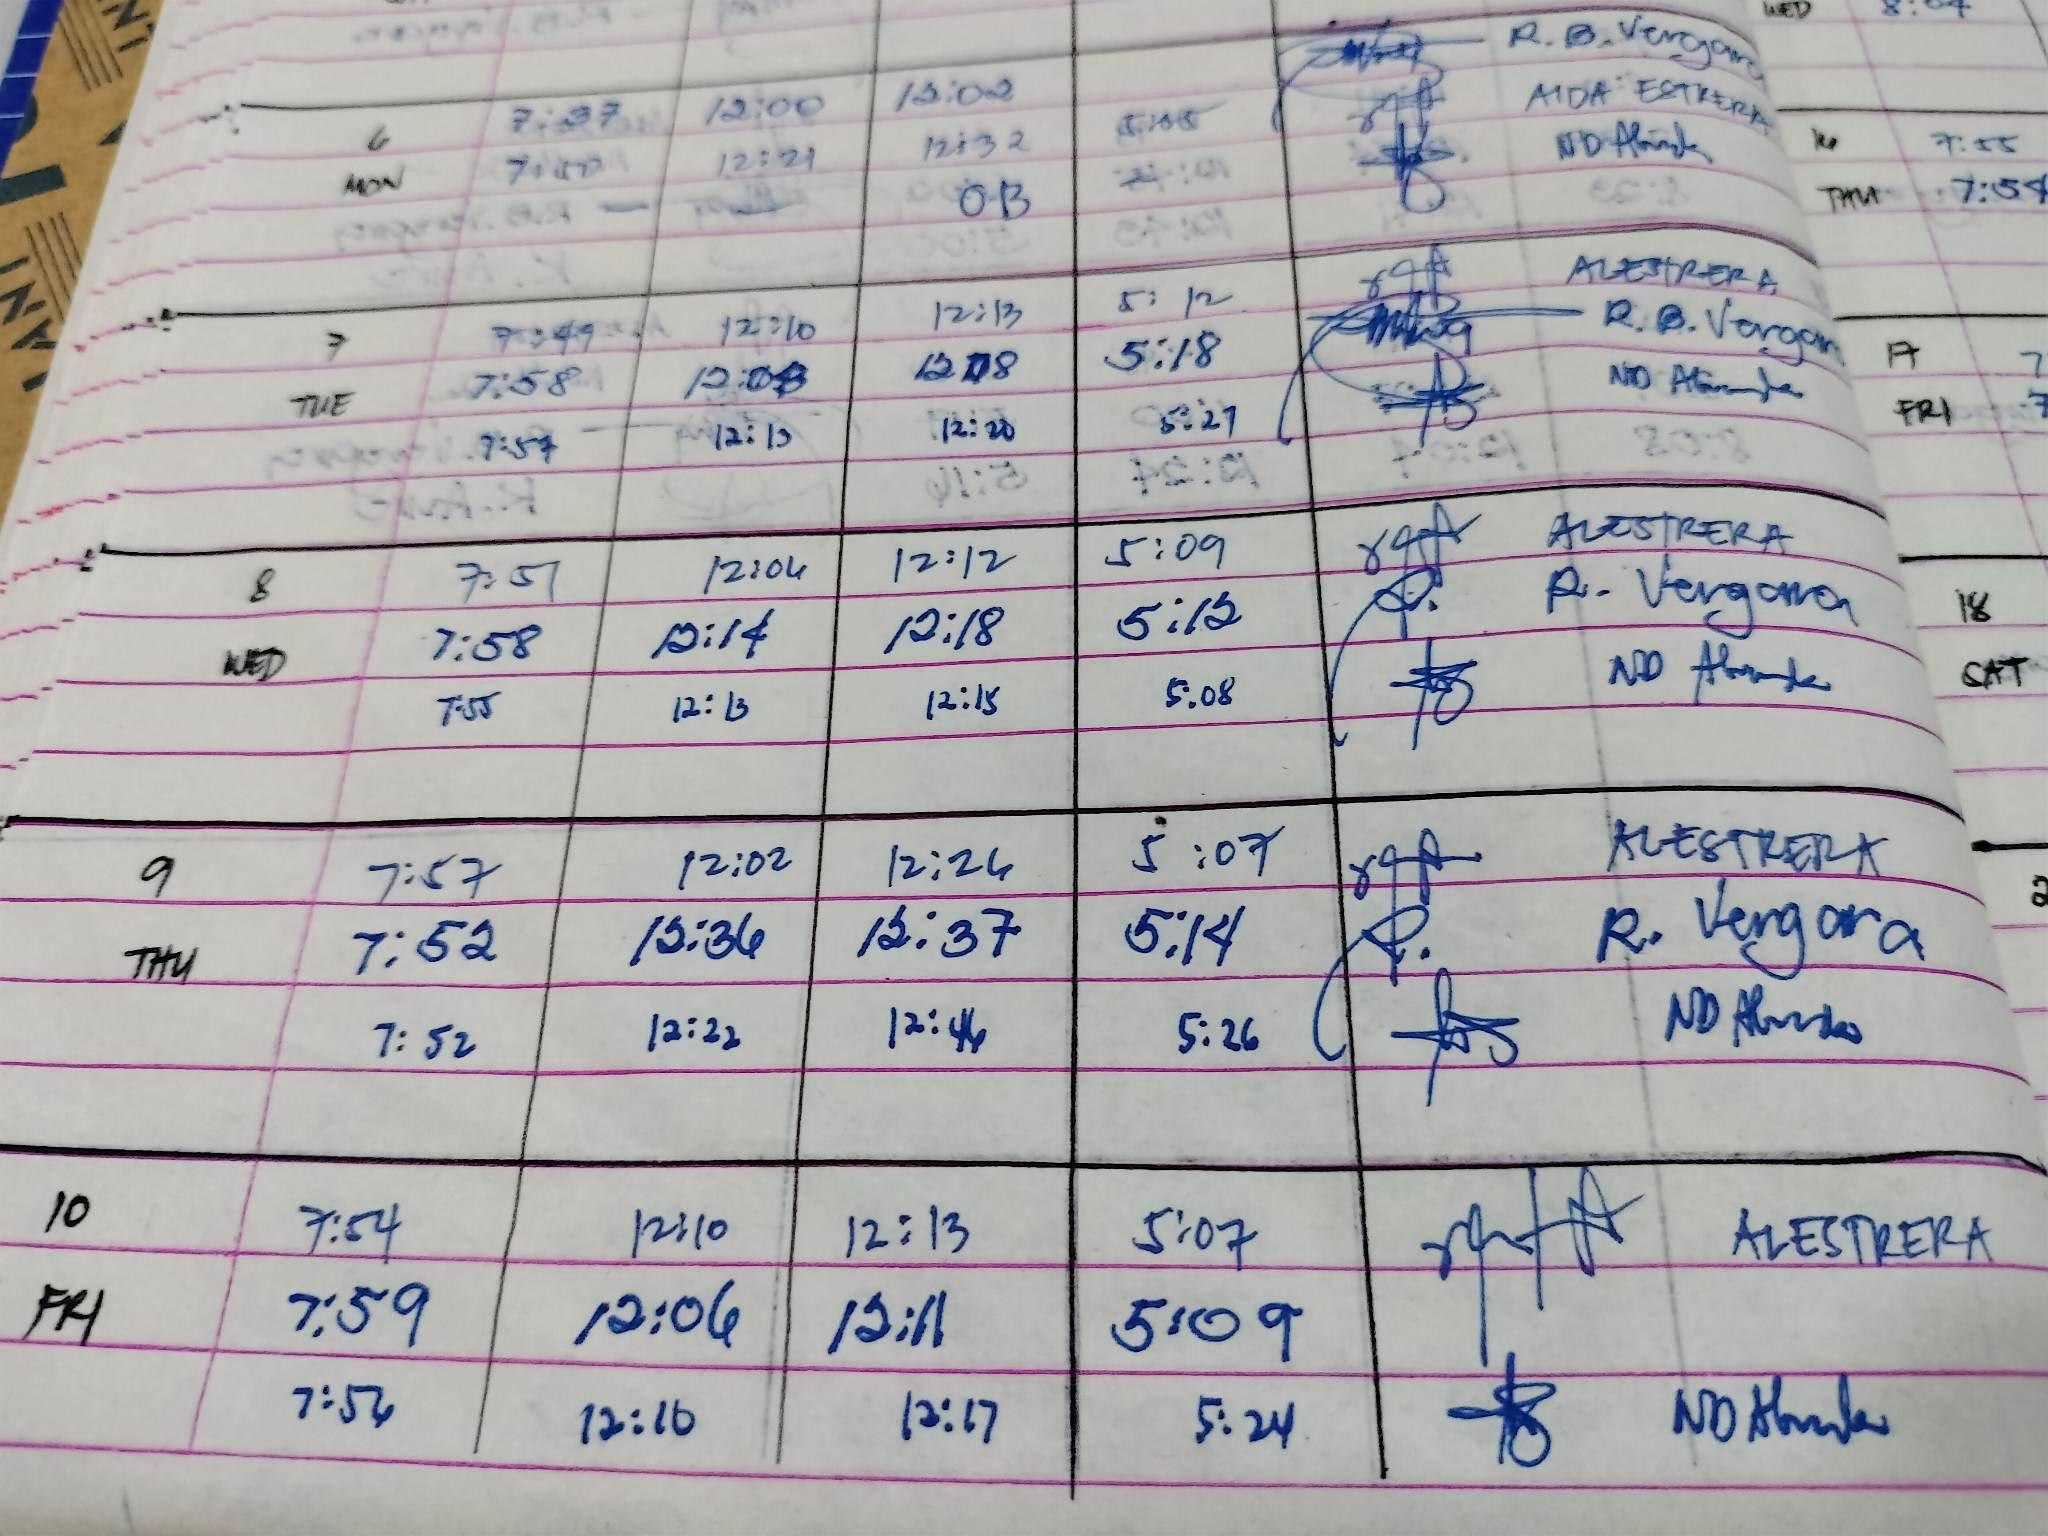 WED 8:04
R. B. Vergara
6 7:37 12:00 12:02 AIDA ESTRERA
MON 7:50 12:21 12:32 ND
OB
7 7:49 12:10 12:13 5:12 ALESTRERA
TUE 7:58 5:18 R. B. Vergara
7:57 12:13 12:20 5:27 ND
8 7:57 12:06 12:12 5:09 ALESTRERA
WED 7:58 12:14 12:18 5:12 R. Vergara
7:55 12:13 12:15 5:08 ND
9 7:57 12:02 12:26 5:07 ALESTRERA
THU 7:52 12:36 12:37 5:14 R. Vergara
7:52 12:22 12:46 5:26 ND
10 7:54 12:10 12:13 5:07 ALESTRERA
FRI 7:59 12:06 12:11 5:09
7:56 12:16 12:17 5:24 ND
16 7:55
THU 7:54
17 7
FRI 7
18
SAT
2